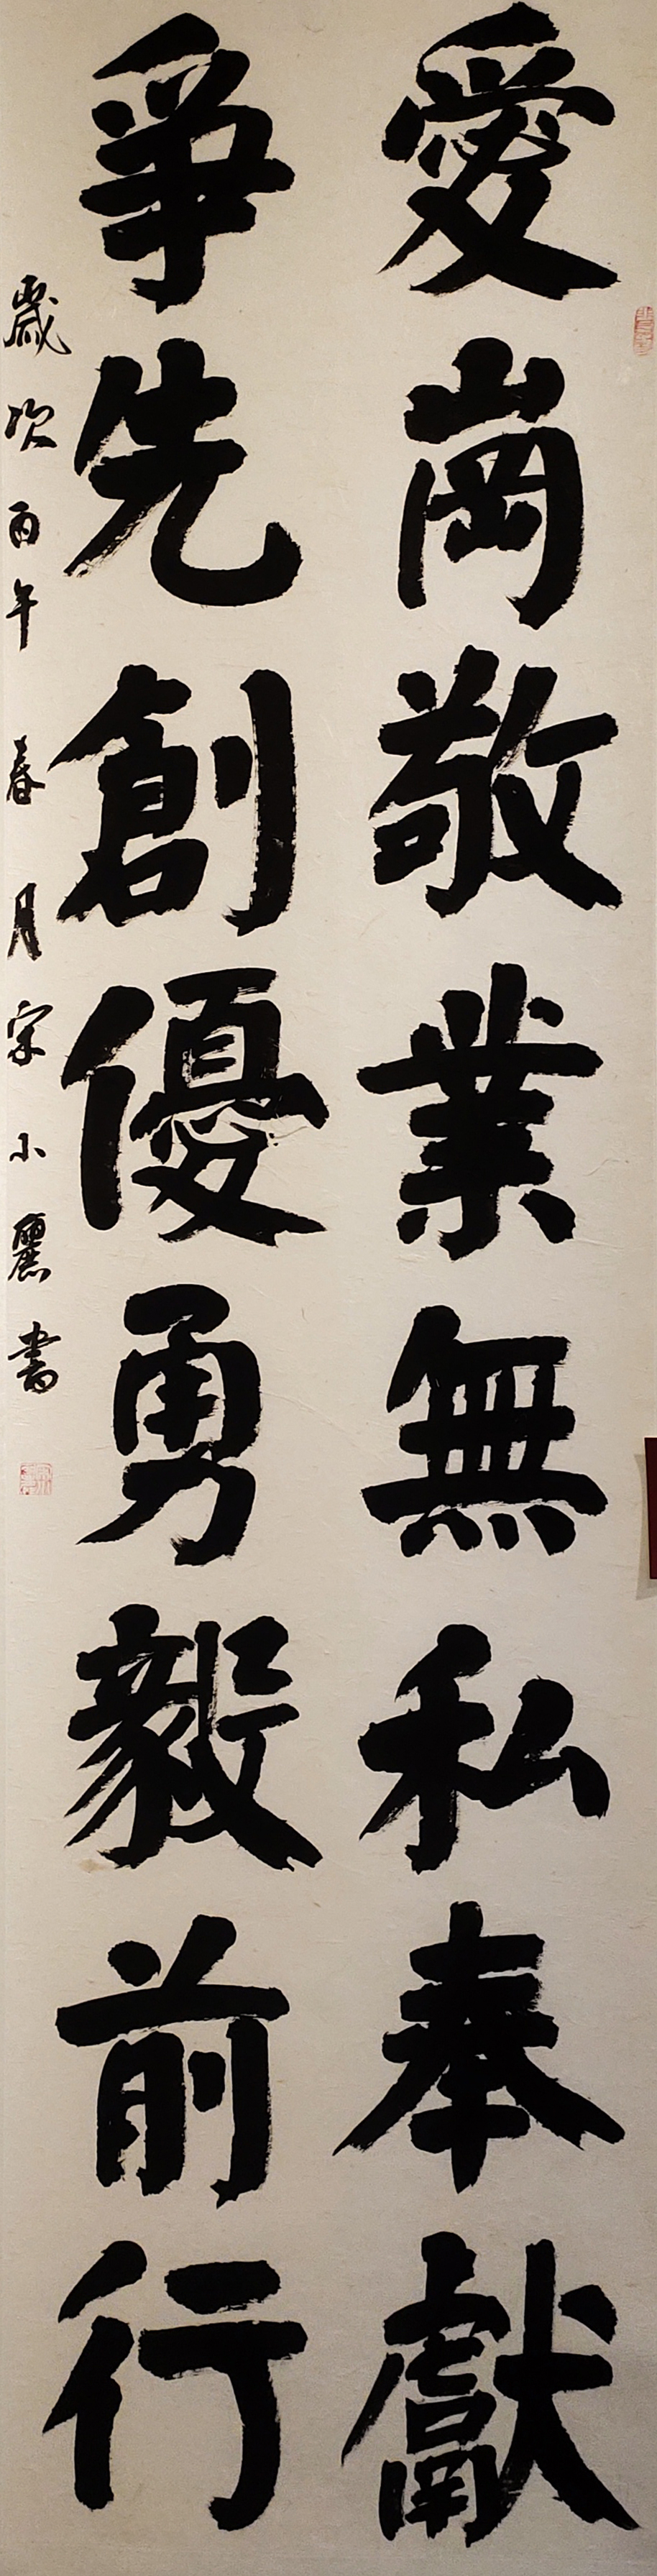 愛崗敬業無私奉獻
爭先創優勇毅前行
歲次丙午春月宋小麗書